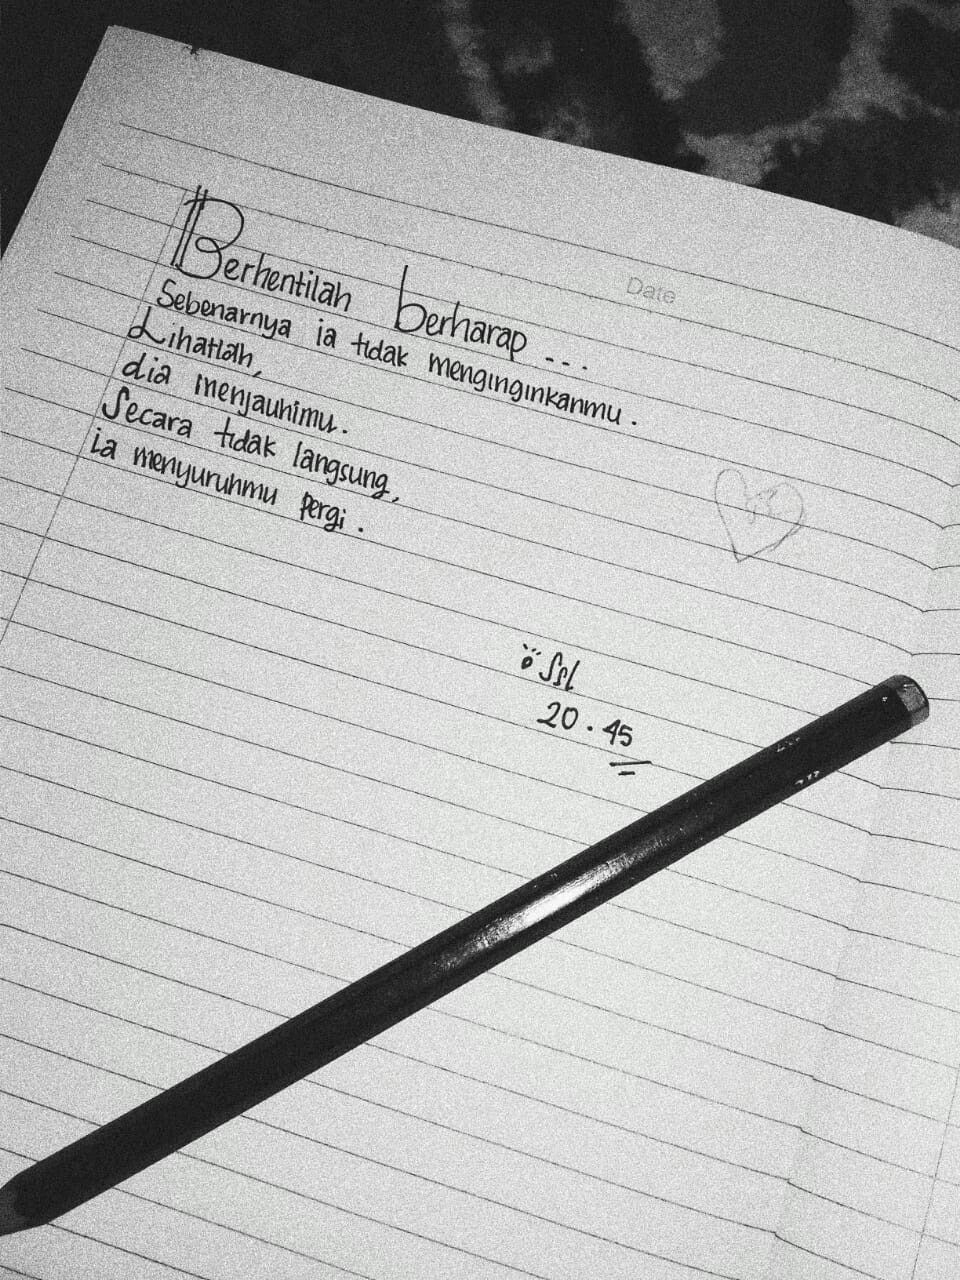 Date
Berhentilah berharap...
Sebenarnya ia tidak menginginkanmu.
Lihatlah,
dia menjauhimu.
Secara tidak langsung,
ia menyuruhmu pergi.
20.45